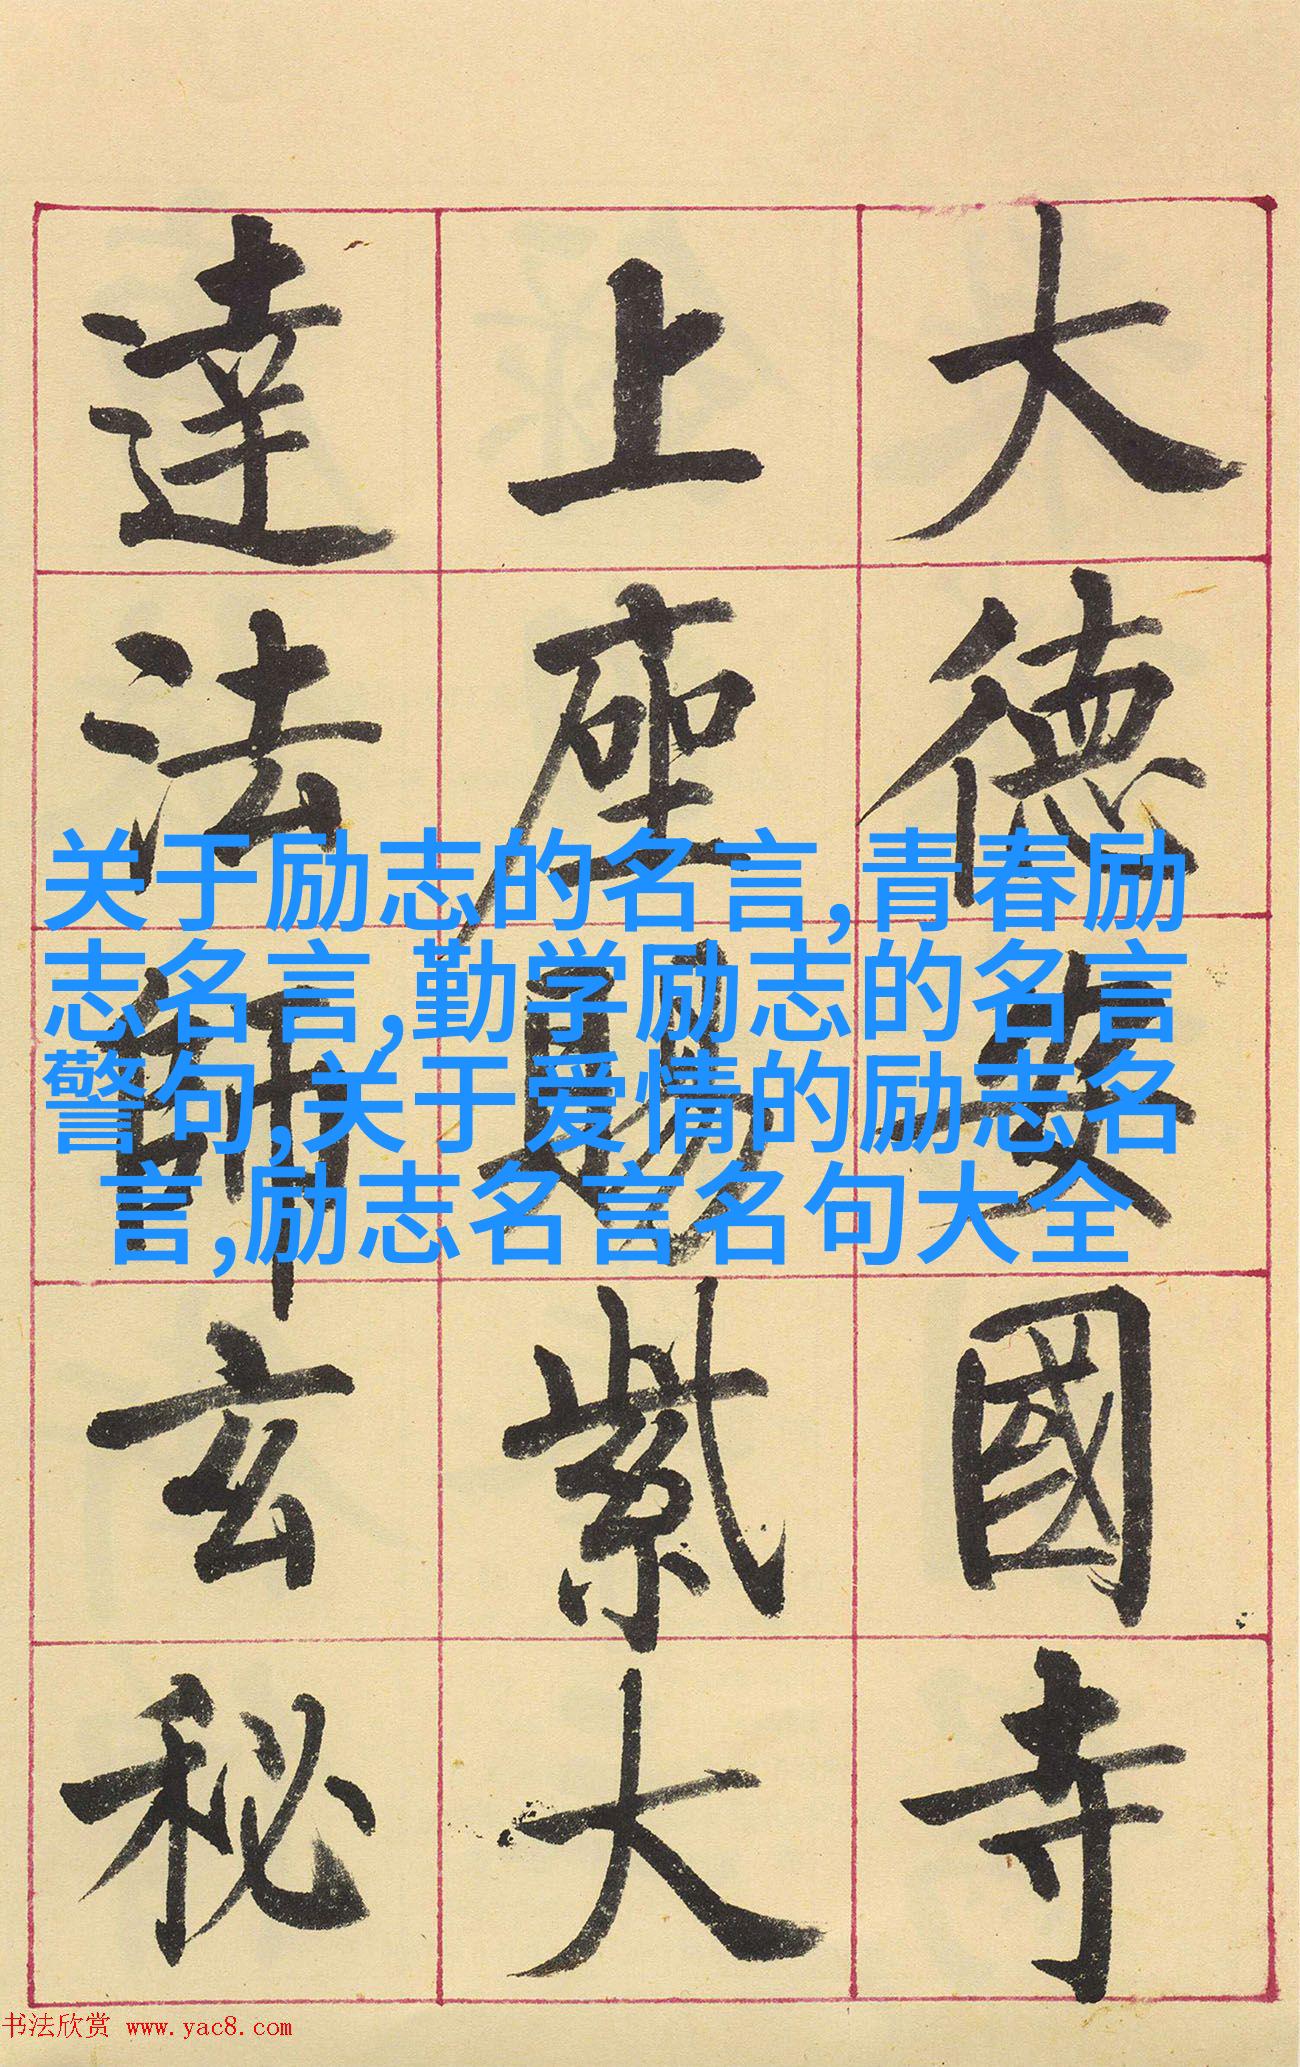 大德安國寺
上座賜紫大
達法師玄秘
关于励志的名言,青春励
志名言,勤学励志的名言
警句,关于爱情的励志名
言,励志名言名句大全
书法欣赏 www.yac8.com